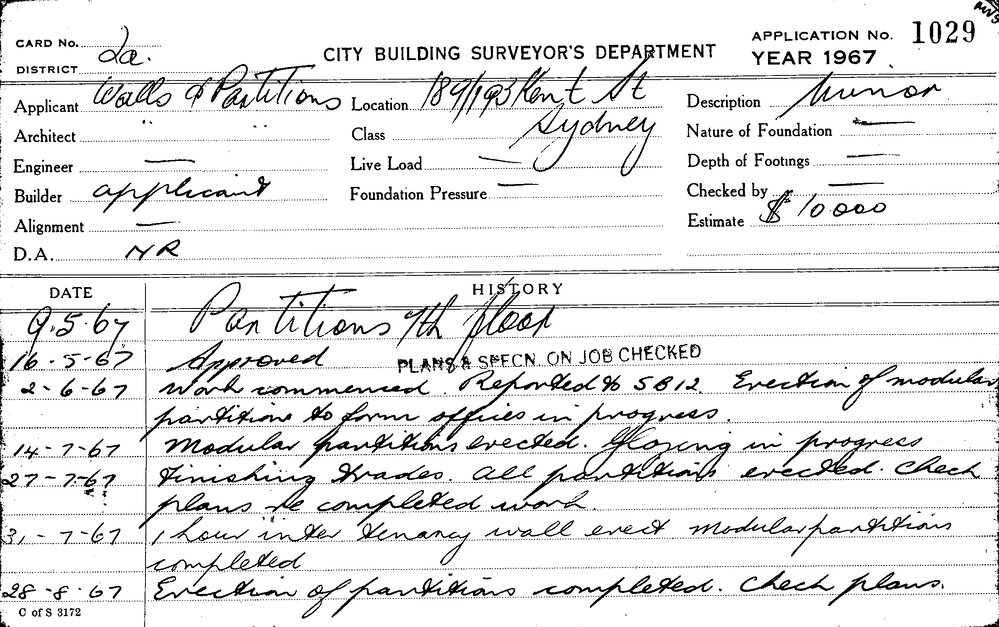 CARD No. 2a.
DISTRICT
CITY BUILDING SURVEYOR'S DEPARTMENT
APPLICATION No. 1029
YEAR 1967
Applicant Walls & Partitions
Location 189/193 Kent St
Sydney
Description Minor
Architect " "
Class
Nature of Foundation —
Engineer —
Live Load —
Depth of Footings —
Builder applicant
Foundation Pressure —
Checked by —
Alignment —
Estimate $ 10000
D.A. NR
DATE HISTORY
9.5.67 Partitions 7th floor
16-5-67 Approved PLANS & SPECN. ON JOB CHECKED
2-6-67 Work commenced. Reported to SB12. Erection of modular
partitions to form offices in progress.
14-7-67 Modular partitions erected. Glazing in progress
27-7-67 Finishing trades. All partitions erected. Check
plans re completed work.
31-7-67 1 hour inter tenancy wall erect Modular partitions
completed
28-8-67 Erection of partitions completed. Check plans.
C of S 3172